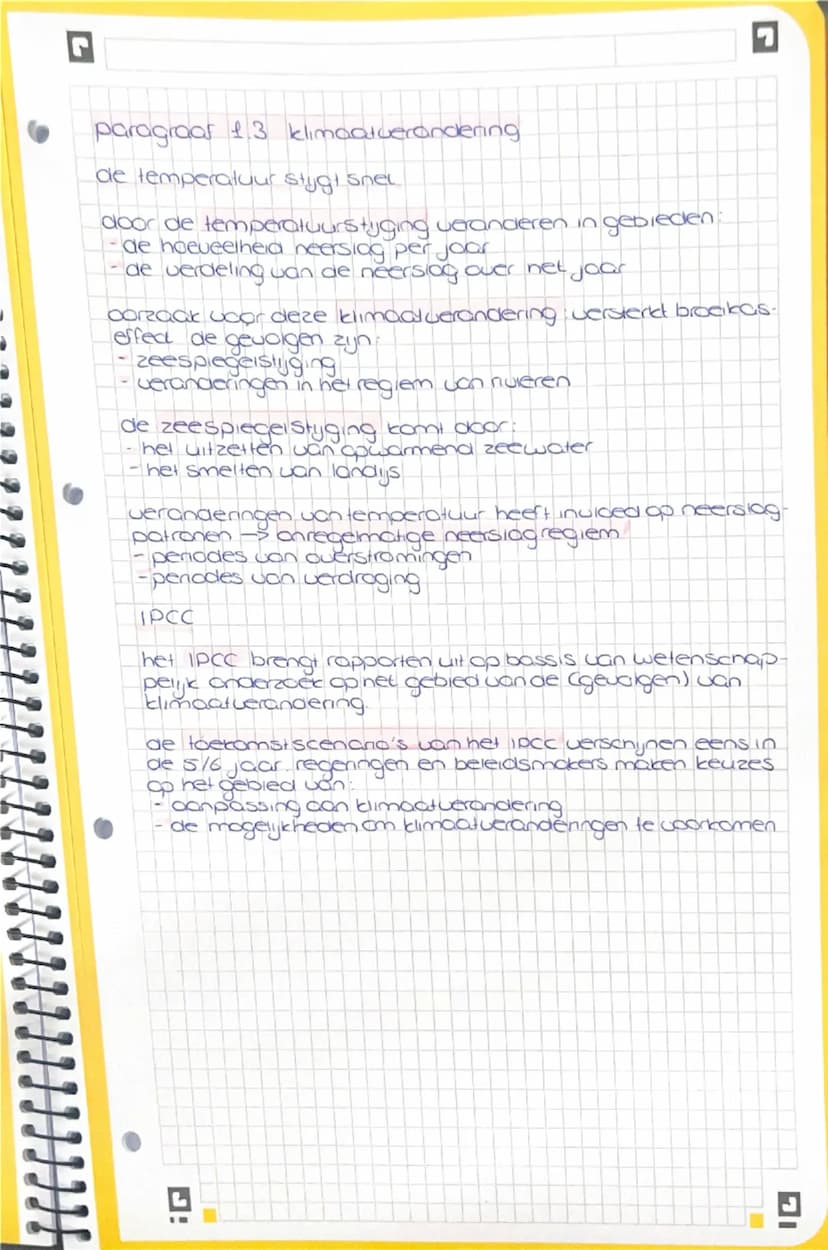 paragraaf 1.3 klimaatverandering
de temperatuur stijgt snel
door de temperatuurstijging veranderen in gebieden:
- de hoeveelheid neerslag per jaar
- de verdeling van de neerslag over het jaar
oorzaak voor deze klimaatverandering: versterkt broeikas-
effect de gevolgen zijn:
- zeespiegelstijging
- veranderingen in het regiem van rivieren
de zeespiegelstijging komt door:
- het uitzetten van opwarmend zeewater
- het smelten van landijs
veranderingen van temperatuur heeft invloed op neerslag-
patronen -> onregelmatige neerslagregiem
- periodes van overstromingen
- periodes van verdroging
IPCC
het IPCC brengt rapporten uit op bassis van wetenschap-
pelijk onderzoek op het gebied van de (gevolgen) van
klimaatverandering.
de toekomstscenario's van het IPCC verschijnen eens in
de 5/6 jaar. regeringen en beleidsmakers maken keuzes
op het gebied van:
- aanpassing aan klimaatverandering
- de mogelijkheden om klimaatveranderingen te voorkomen